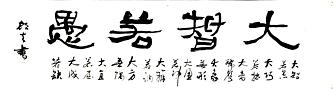 大智若愚
大智
若愚
大巧
若拙
大音
希聲
大象
無形
大辯
若訥
大方
無隅
大直
若屈
大成
若缺
書